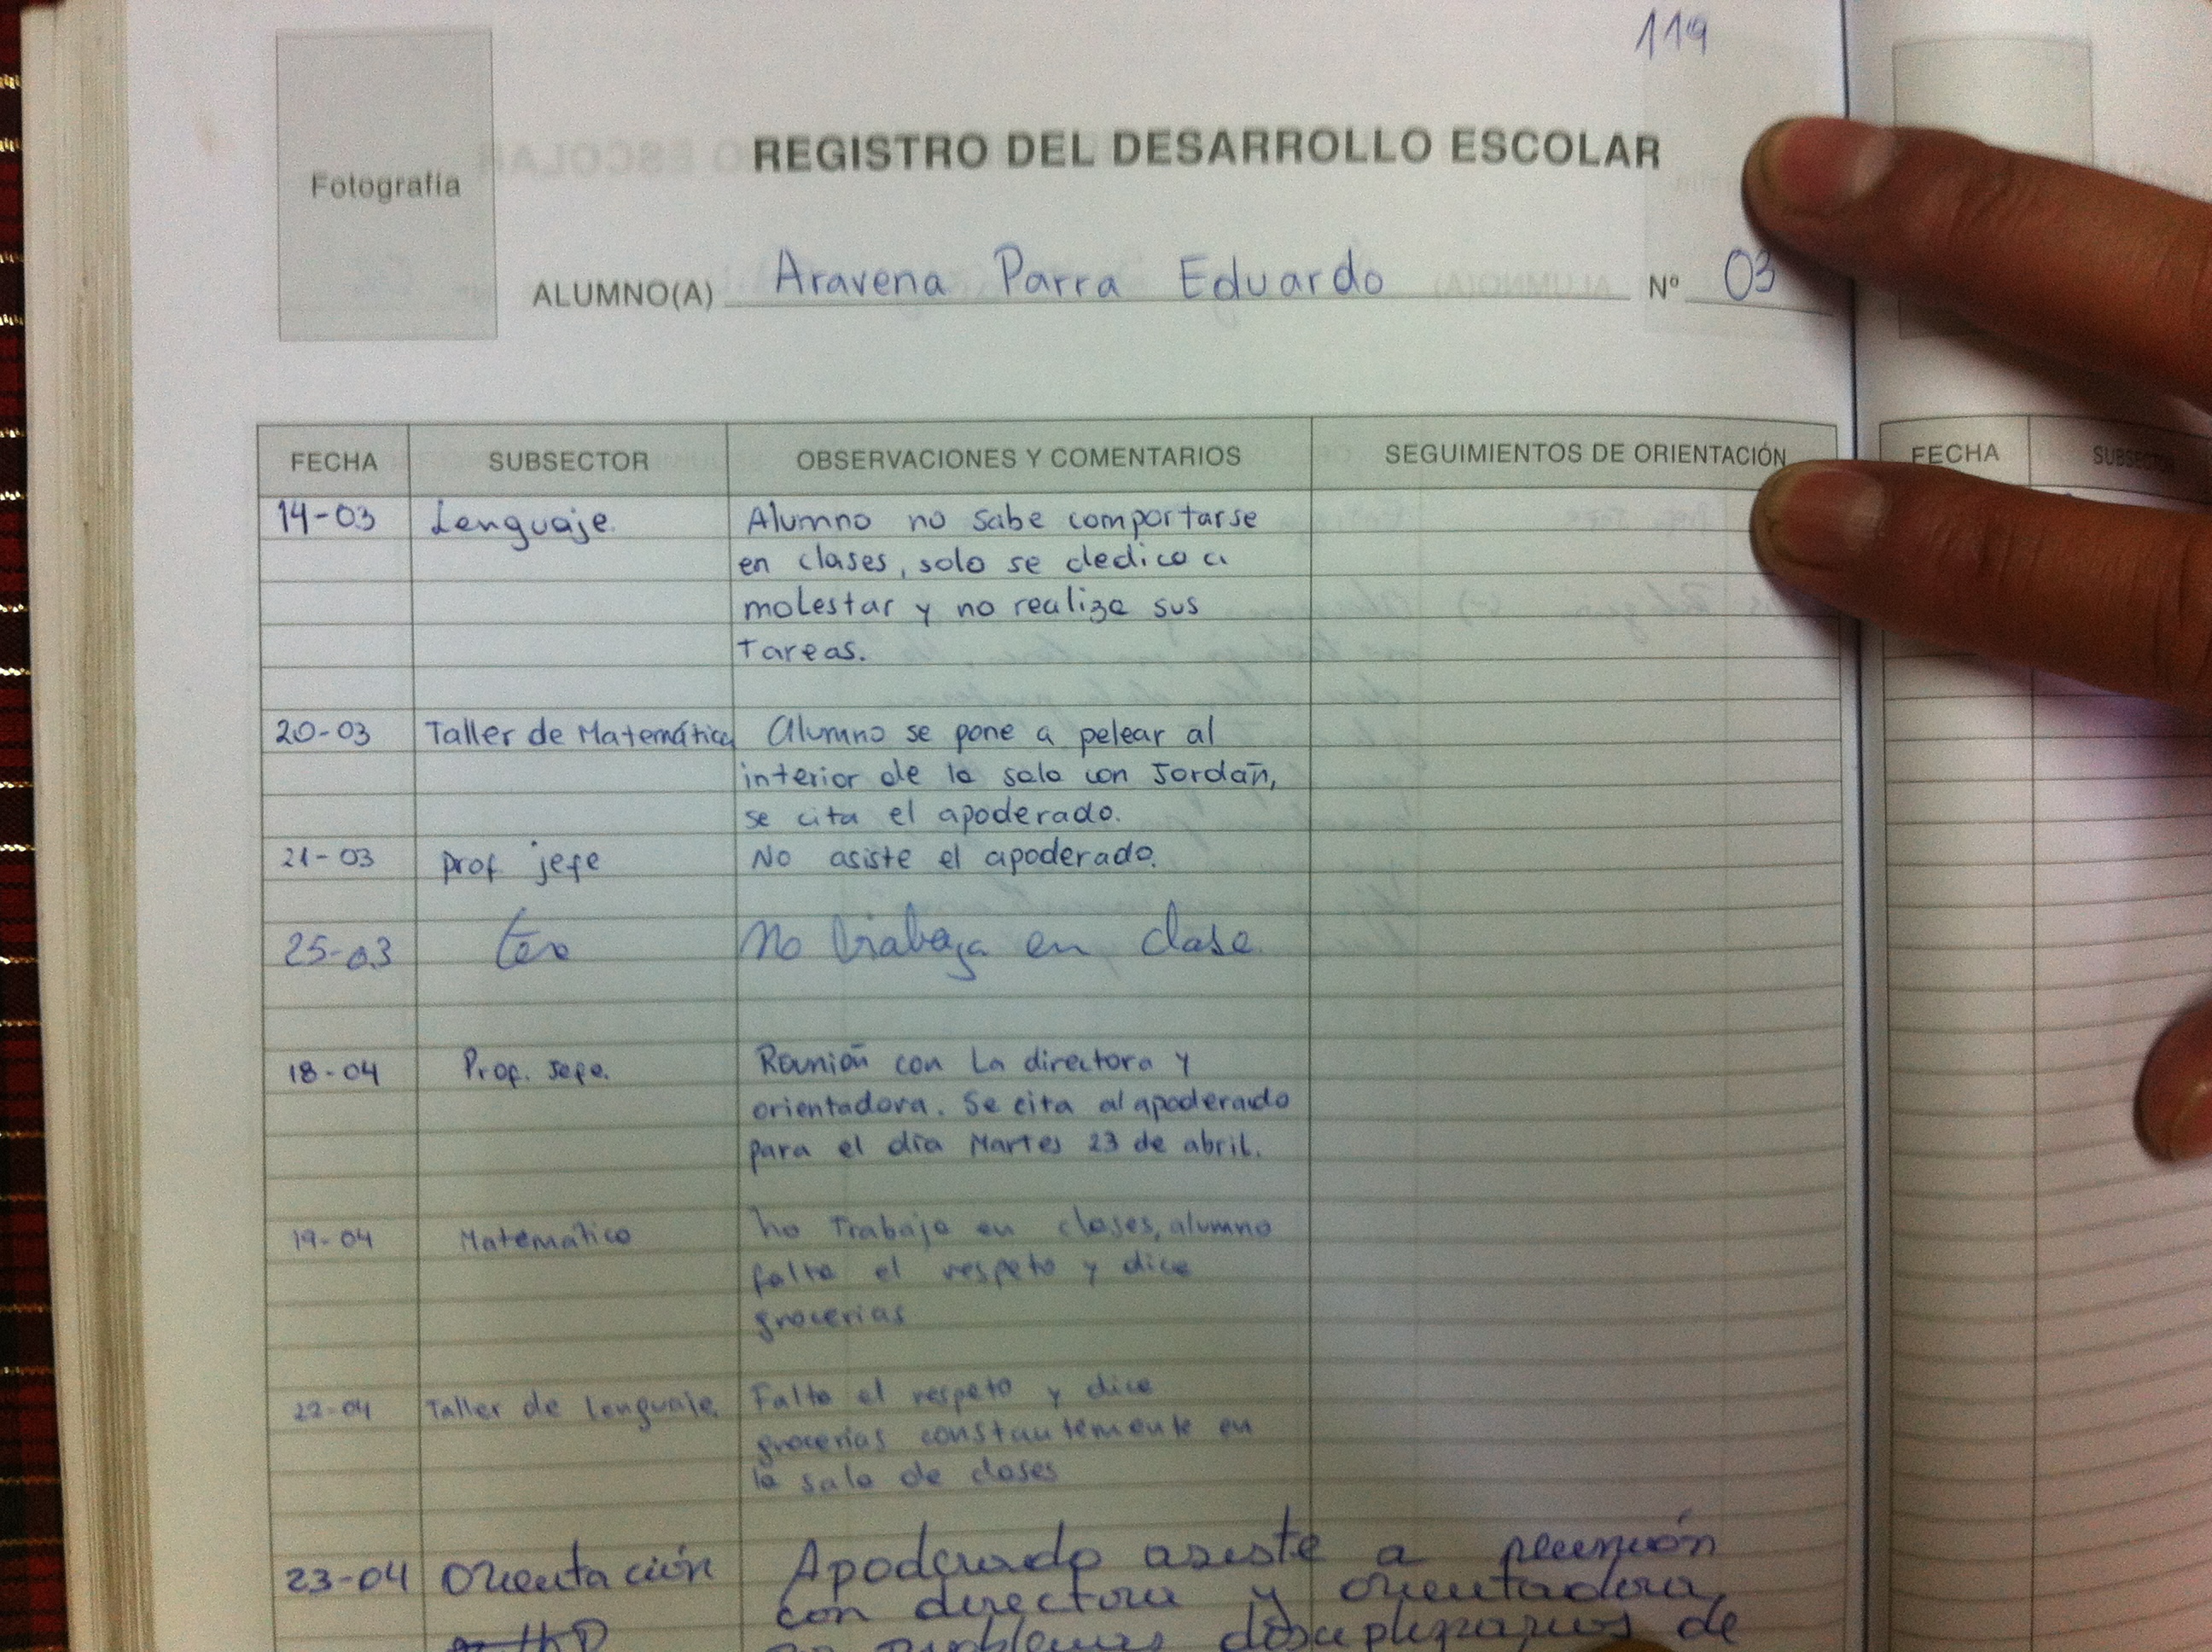 119
REGISTRO DEL DESARROLLO ESCOLAR
Fotografía
ALUMNO(A) Aravena Parra Eduardo Nº 03
FECHA SUBSECTOR OBSERVACIONES Y COMENTARIOS SEGUIMIENTOS DE ORIENTACIÓN
14-03 Lenguaje. Alumno no sabe comportarse
en clases, solo se dedica a
molestar y no realiza sus
Tareas.
20-03 Taller de Matemática Alumno se pone a pelear al
interior de la sala con Jordán,
se cita el apoderado.
21-03 prof. jefe No asiste el apoderado.
25-03 No trabaja en clase
18-04 Prof. Jefe. Reunión con La directora y
orientadora. Se cita al apoderado
para el día Martes 23 de abril.
19-04 Matemática no Trabaja en clases, alumno
falta el respeto y dice
groserias
22-04 Taller de lenguaje. Falta el respeto y dice
groserias constantemente en
la sala de clases
23-04 Orientación Apoderado asiste a reunión
con directora y orientadora
por problemas disciplinarios de
FECHA